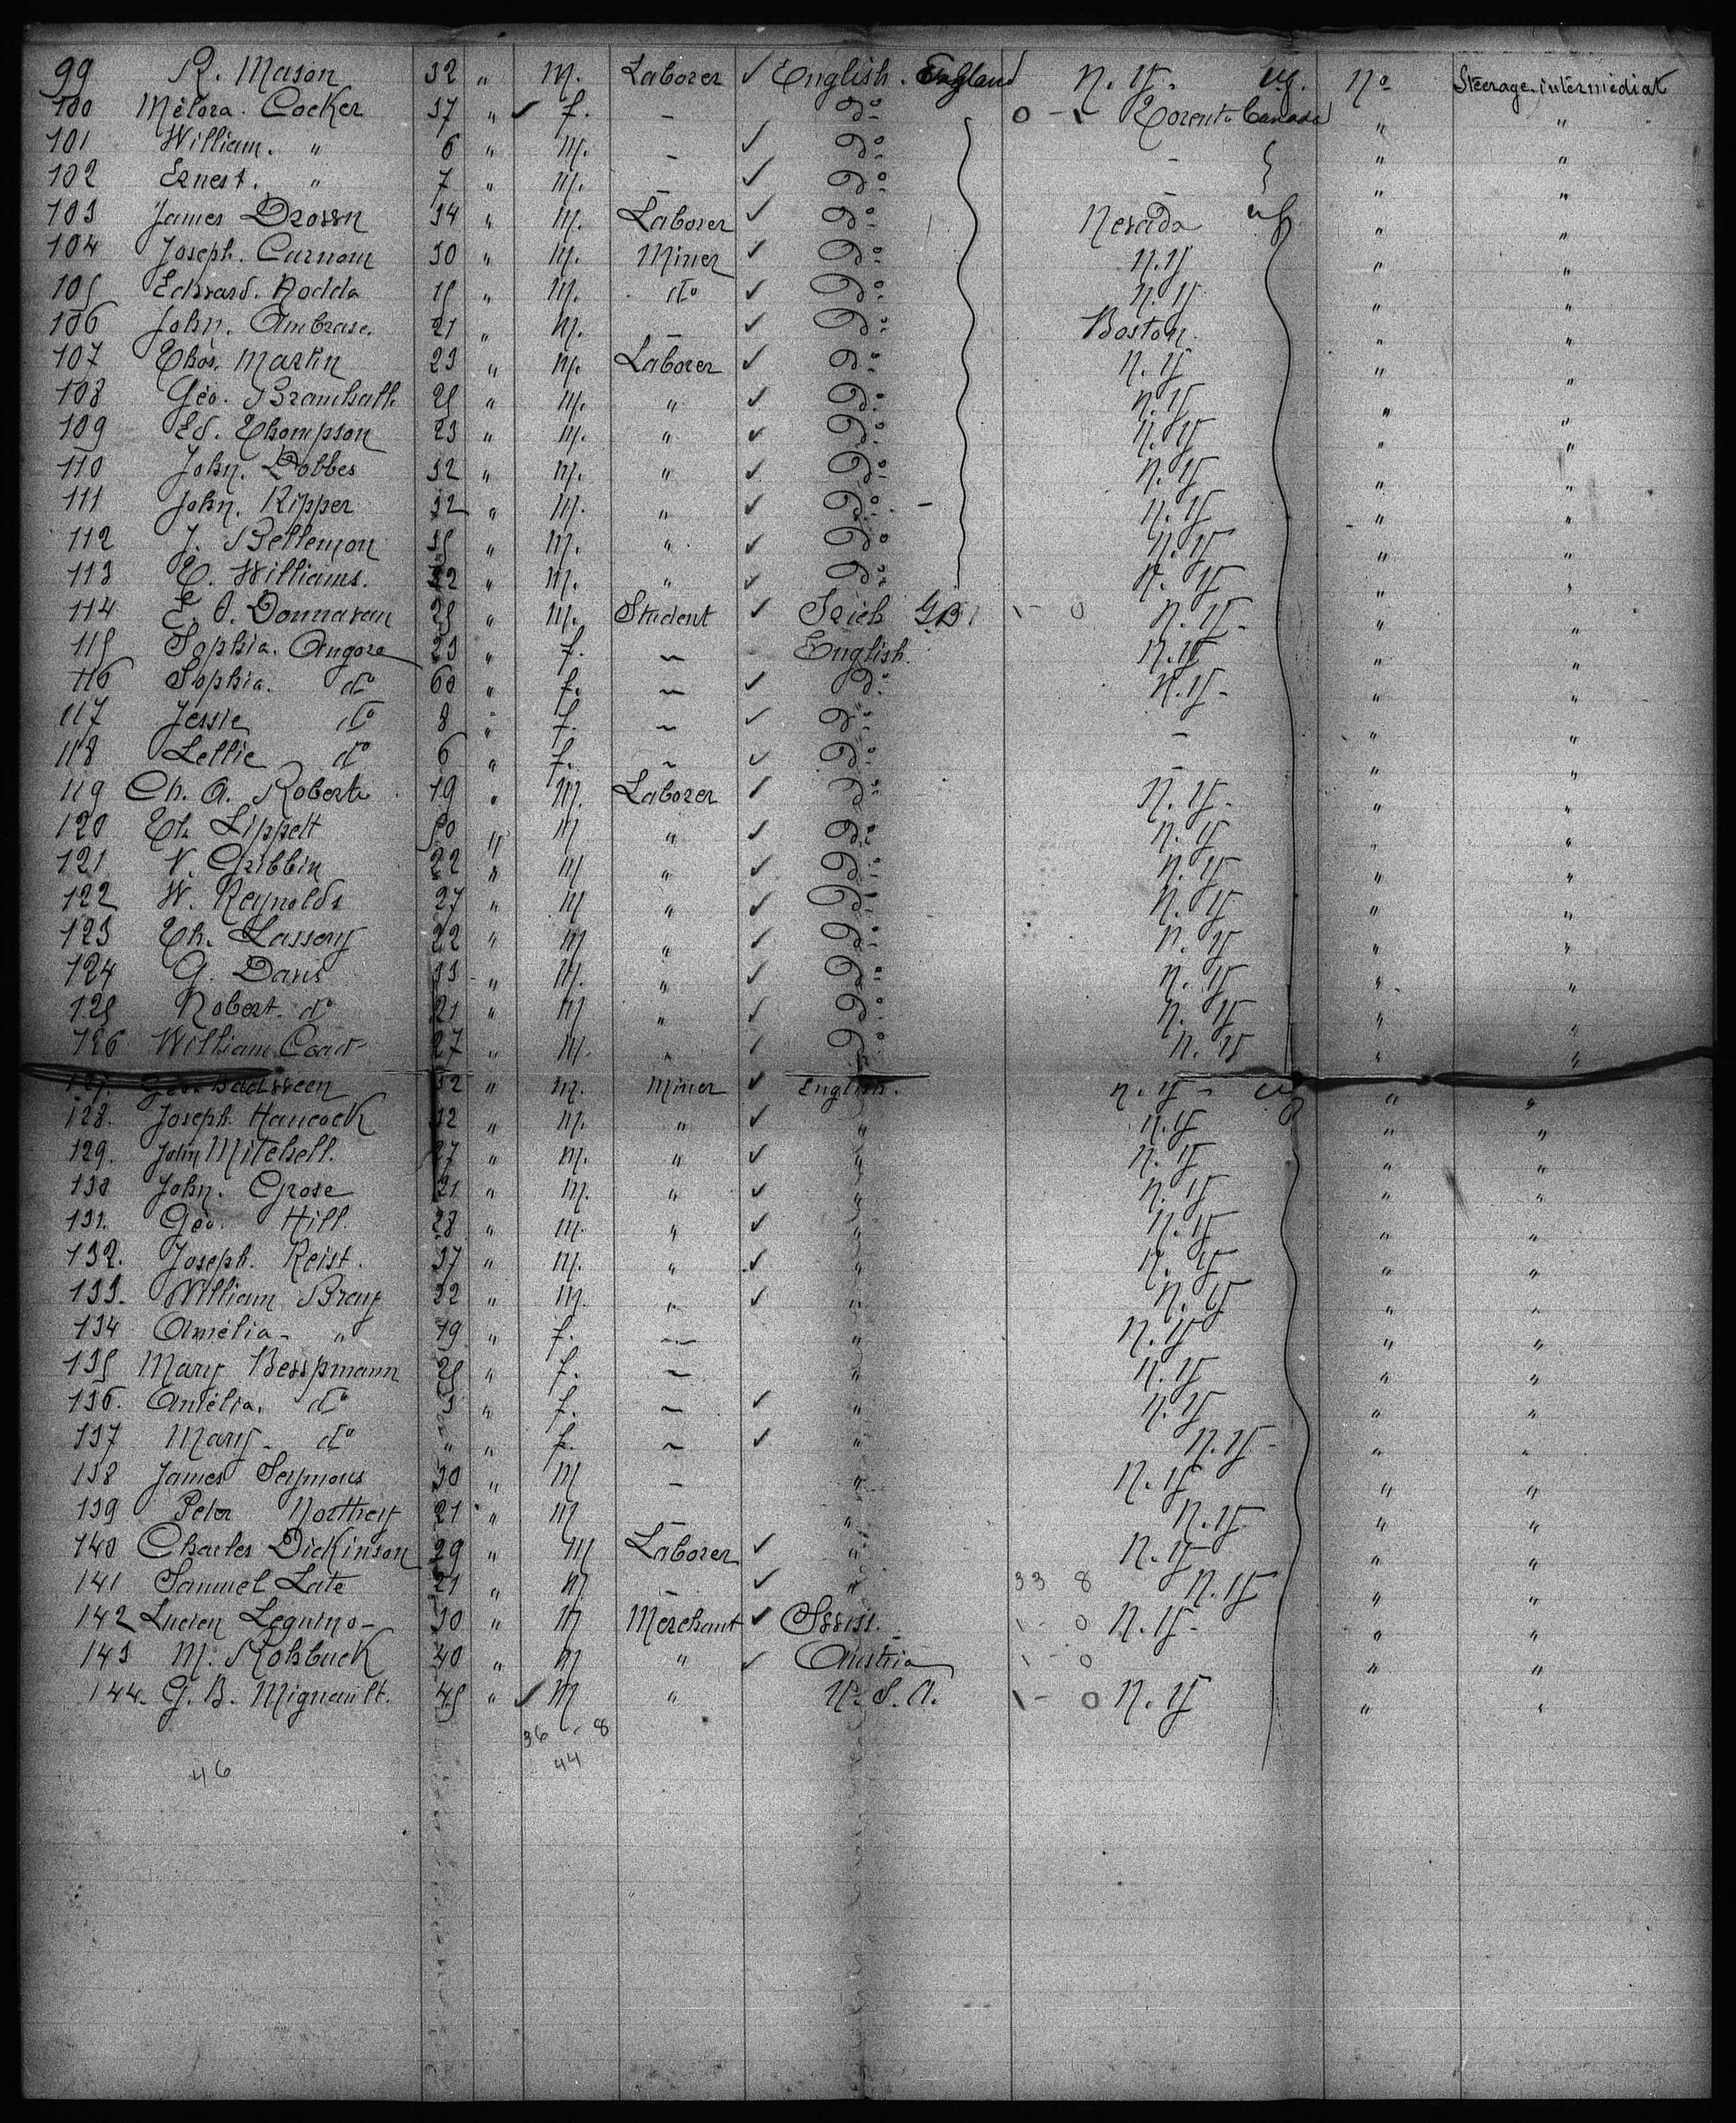 99 R. Mason 32 " M. Laborer ✓ English. England N. Y. Uf. No Steerage intermediat
100 Mélora. Cocker 37 " ✓ f. - do 0 - 1 Toronto Canada " "
101 William. " 6 " M. - ✓ do - " "
102 Ernest. " 7 " M. - ✓ do - " "
103 James 34 " M. Laborer ✓ do Nevada " "
104 Joseph. Curnow 30 " M. Miner ✓ do N.Y " "
105 Edward. Rodda 15 " M. do ✓ do N.Y " "
106 John. Ambrose. 21 " M. - ✓ do Boston. " "
107 Thos. Martin 23 " M. Laborer ✓ do N.Y " "
108 Géo. Bramhall. 25 " M. " ✓ do N.Y " "
109 Ed. Thompson 23 " M. " ✓ do N.Y " "
110 John. Dobbes 32 " M. " ✓ do N.Y " "
111 John. Kipper 32 " M. " ✓ do - N.Y " "
112 J. Bellemon " M. " ✓ do N.Y " "
113 E. Williams. " M. " ✓ do N.Y " "
114 Donnavan 25 " M. Student ✓ Irich GB 1 - 0 N.Y. " "
115 Sophia. Angore 23 " f. ~ English. N.Y " "
116 Sophia. do 60 " f. ~ ✓ do N.Y- " "
117 Jessie do 8 " f. ~ ✓ do - " "
118 Lellie do 6 " f. ~ ✓ do - " "
119 Ch. A. Roberts 19 " M. Laborer ✓ do N.Y- " "
120 Th. Lippelt 50 " M " ✓ do N.Y " "
121 Gribbin 22 " M " ✓ do N.Y " "
122 W. Reynolds 27 " M " ✓ do N.Y " "
123 Th. Lassery 22 " M " ✓ do N.Y " "
124 G. Davis 33 " M. " ✓ do N.Y " "
125 Robert. do 21 " M " ✓ do N.Y " "
126 William Coad 27 " M. " ✓ do N.Y " "
127. Géo. 32 " M. Miner ✓ English. N.Y - " "
128. Joseph. Hancock 32 " M. " ✓ " N.Y " "
129. John Mitchell. 27 " M. " ✓ " N.Y " "
130 John. Grose 21 " M. " ✓ " N.Y " "
131. Géo. Hill. 28 " M. " ✓ " N.Y " "
132. Joseph. Reist. 37 " M. " ✓ " N.Y " "
133. William Bray 22 " M. " ✓ " N.Y " "
134 Amélia - " 19 " f. ~ " N.Y " "
135 Mary Besspmann 25 " f. ~ " N.Y " "
136. Amélia. do 3 " f. ~ ✓ " N.Y " "
137 Mary- do " " f. ~ ✓ " N.Y- " "
138 James Seymous 30 " M - " N.Y " "
139 Peter Northey 21 " M - " N.Y " "
140 Charles Dickinson 29 " M Laborer ✓ " N.Y- " "
141 Samuel Late 21 " M - ✓ " 33 8 N.Y " "
142 Lucien Leguino- 30 " M Merchant ✓ 1 - 0 N.Y- " "
143 M. Rohbuck 40 " M " ✓ Austria 1 - 0 " "
144. G. B. Mignault. 45 " ✓ M " U. S. A. 1 - 0 N.Y " "
36 - 8
44
46